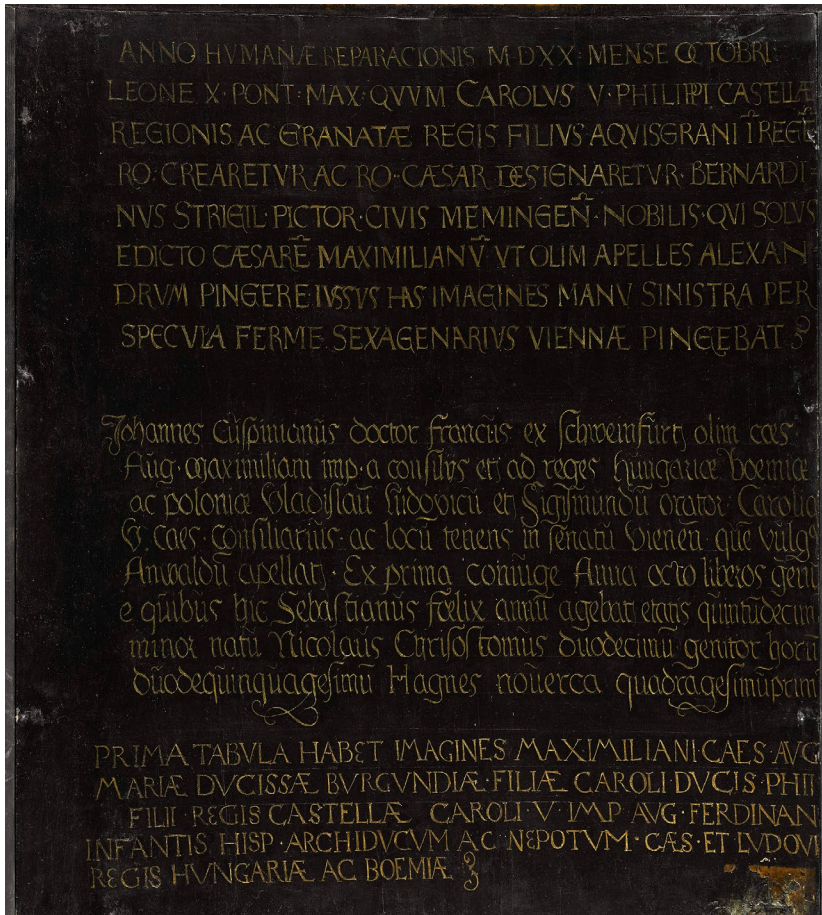 ANNO HVMANÆ REPARACIONIS M·DXX· MENSE OCTOBRI·
LEONE X·PONT·MAX·QVVM CAROLVS V·PHILIPPI CASTELLÆ
REGIONIS AC GRANATÆ REGIS FILIVS AQVISGRANI I͞ REGE͞
RO·CREARETVR AC RO·CÆSAR DESIGNARETVR·BERNARDI
NVS STRIGIL·PICTOR·CIVIS MEMINGEN͞·NOBILIS·QVI SOLVS
EDICTO CÆSARE͞ MAXIMILIANV͞ VT OLIM APELLES ALEXAN
DRVM PINGERE IVSSVS HAS IMAGINES MANV SINISTRA PER
SPECVLA FERME SEXAGENARIVS VIENNÆ PINGEBAT
Johannes Cuspinianus doctor francus ex schweinfurt olim caes·
Aug·Maximiliani imp·a consilijs et ad reges hungariæ boemiæ
ac poloniæ Vladislau͞ Ludovicu͞ et Sigismundu͞ orator·Caroliq
V·caes·Consiliarius·ac locu͞ tenens in senatu Vienen͞·que͞ vulgo
Anwaldu͞ apellat·Ex prima coniuge Anna octo liberos genu
e quibus hic Sebastianus fœlix annu͞ agebat etatis quintudecim
minor natu Nicolaus Chrisostomus duodecimu͞ genitor horu͞
duodequinquagesimu͞ Hagnes noverca quadragesimu͞prim
PRIMA TABVLA HABET IMAGINES MAXIMILIANI·CAES·AVG
MARIÆ DVCISSÆ BVRGVNDIÆ·FILIÆ CAROLI·DVCIS·PHILI
FILII·REGIS CASTELLÆ CAROLI·V·IMP AVG·FERDINAN
INFANTIS HISP·ARCHIDVCVM AC NEPOTVM·CÆS·ET LVDOVI
REGIS HVNGARIÆ AC BOEMIÆ